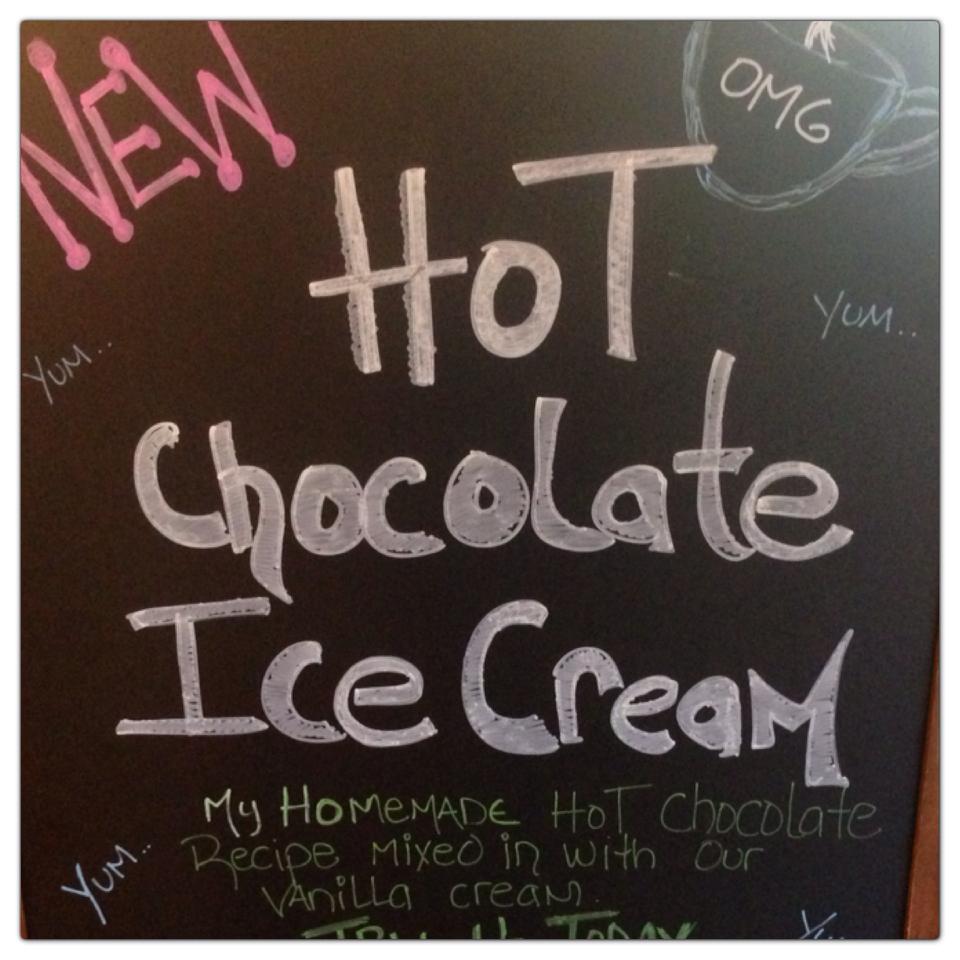 NEW
OMG
HoT
YUM..
YUM...
Chocolate
Ice Cream
My HOMeMADE HoT Chocolate
Recipe mixed in with our
vanilla cream.
YUM...
TODAY